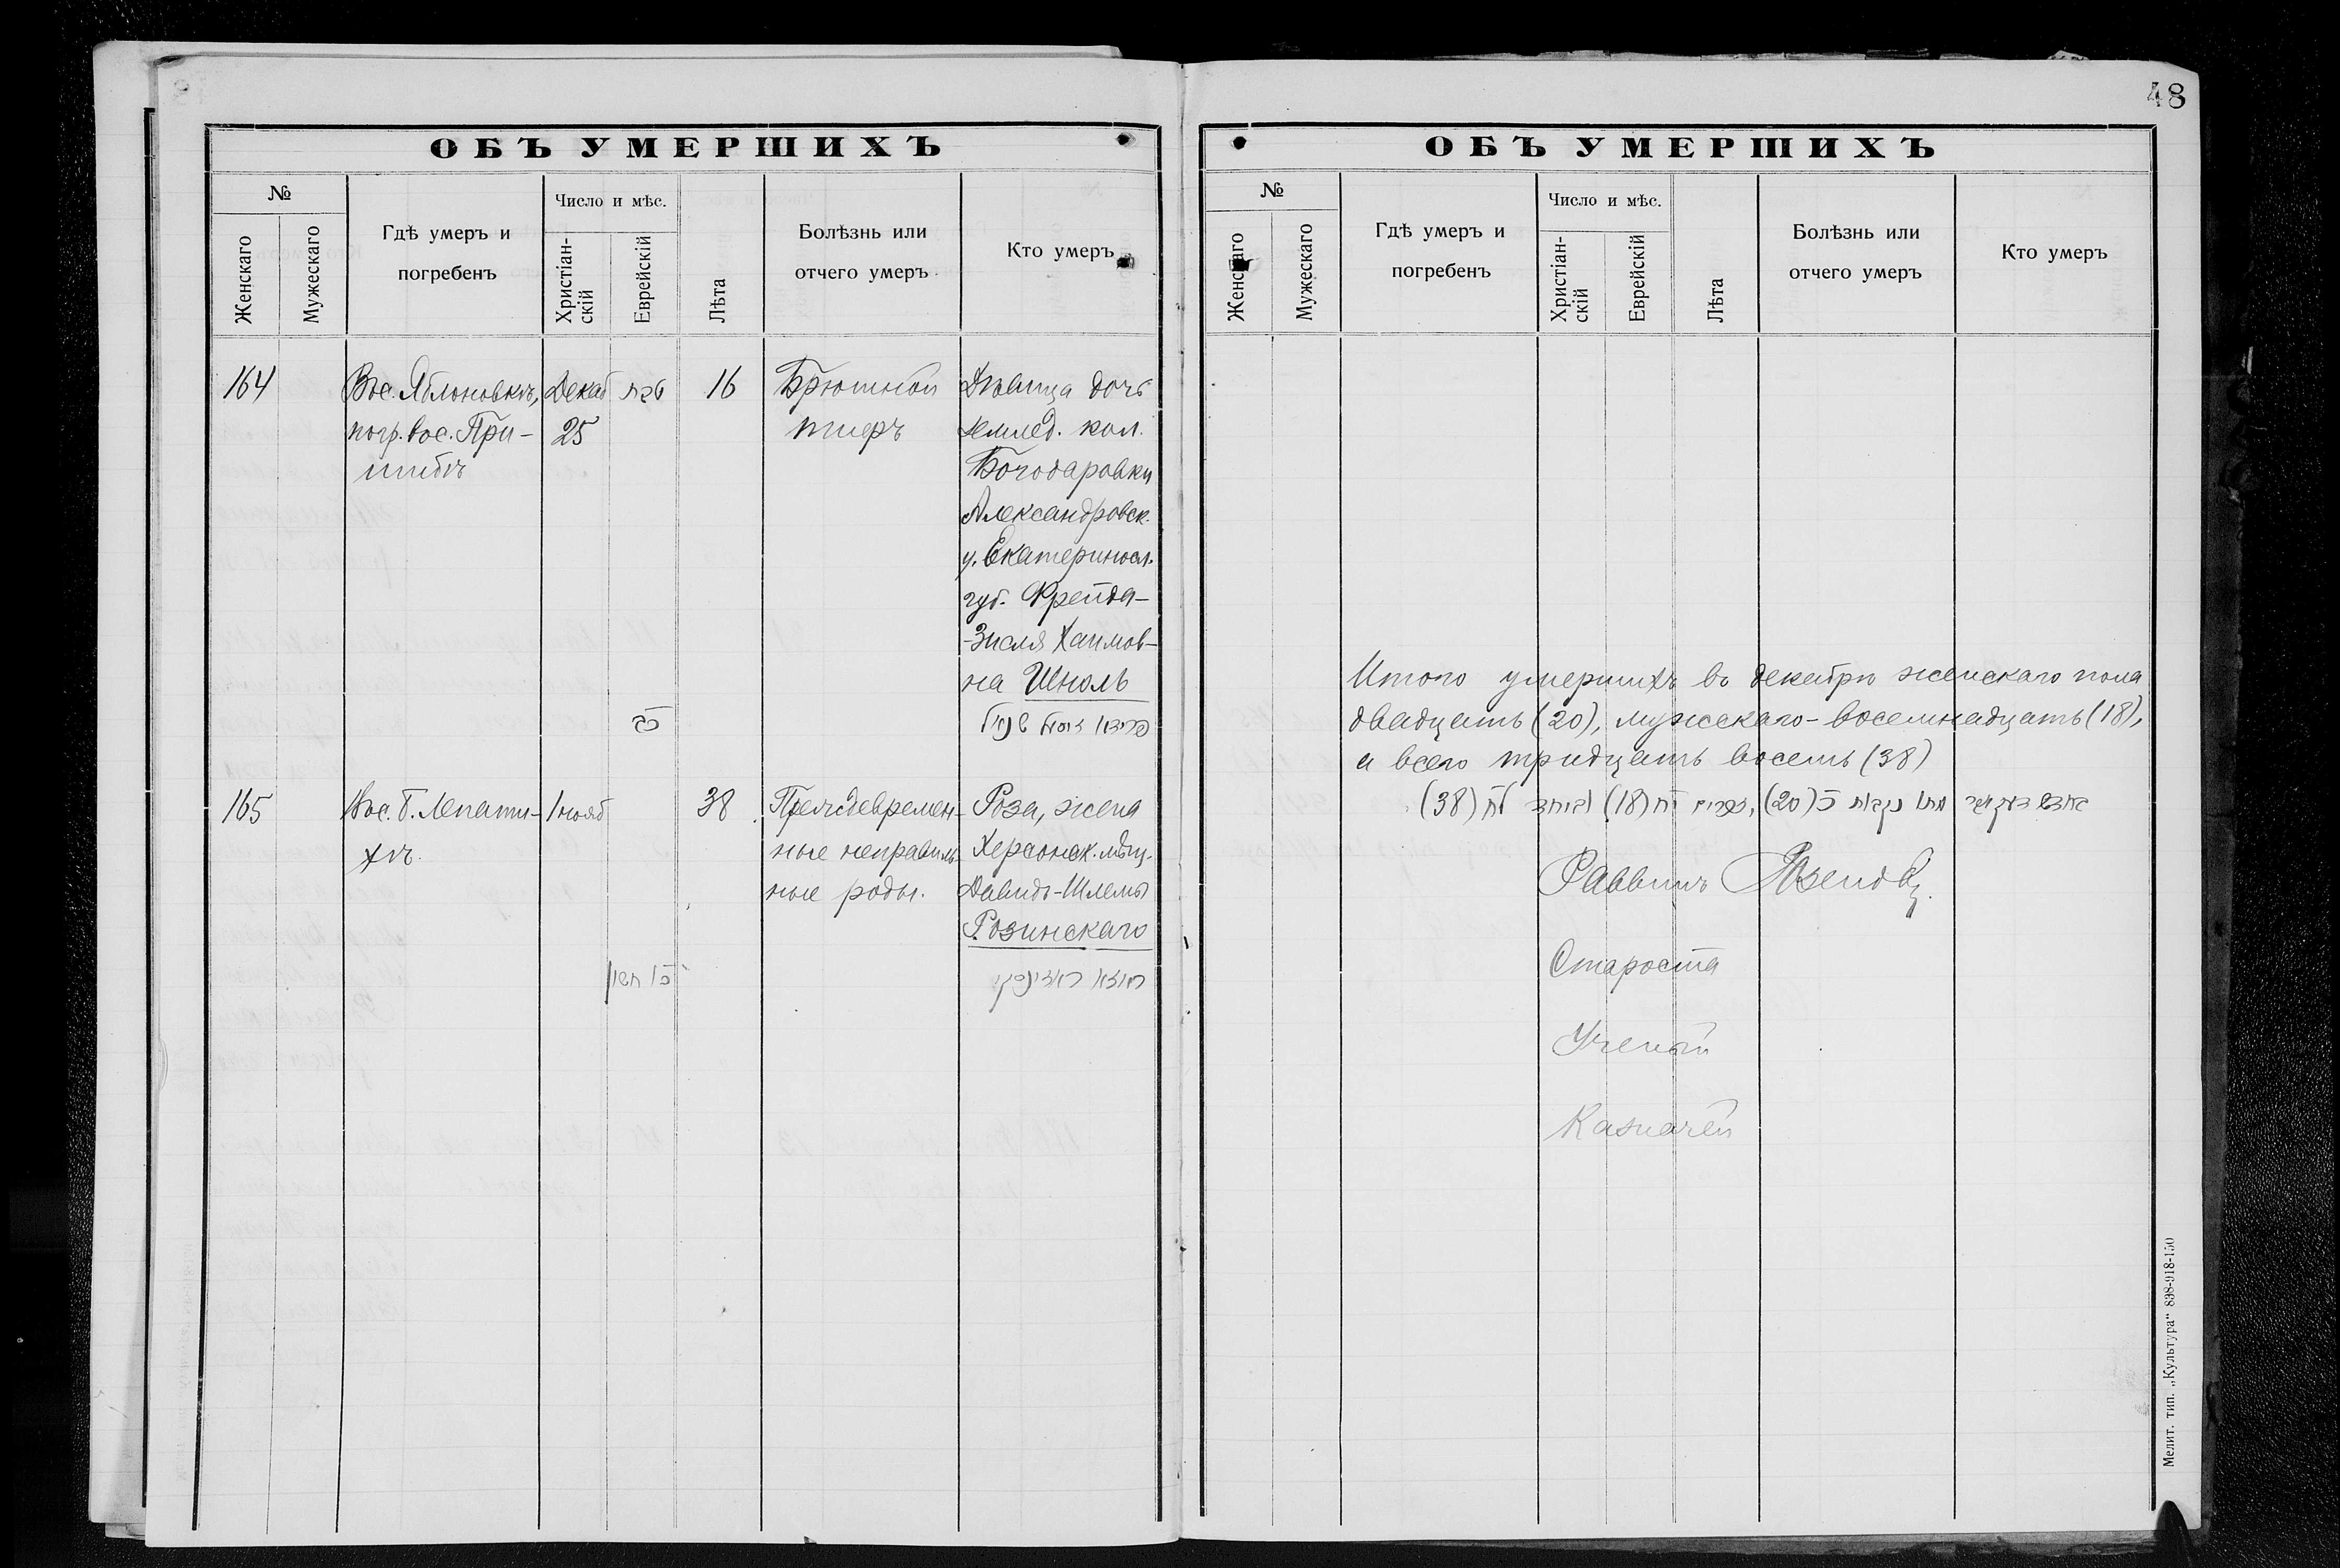 48
ОБЪ УМЕРШИХЪ
№
Женскаго
Мужескаго
Гдѣ умеръ и
погребенъ
Число и мѣс.
Христіан-
скій
Еврейскій
Лѣта
Болѣзнь или
отчего умеръ
Кто умеръ
164
Вос. Яблоновкѣ,
погр. вос. При-
шибѣ
Декаб
25
טבת
כה
16
Брюшной
тифъ
Дѣвица дочь
землед. кол.
Богодаровки
Александровск.
у. Екатериносл.
губ. Фрейда-
-Зисля Хаимов-
на Школь
165
Вос. Б. Лепати-
хѣ
1 нояб
38
Преждевремен-
ные неправиль-
ные роды.
Роза, жена
Херсонск. мѣщ.
Давидъ-Шлемы
Розинскаго
ראזא ראזינסקי
ОБЪ УМЕРШИХЪ
№
Женскаго
Мужескаго
Гдѣ умеръ и
погребенъ
Число и мѣс.
Христіан-
скій
Еврейскій
Лѣта
Болѣзнь или
отчего умеръ
Кто умеръ
Итого умершихъ въ декабрѣ женскаго пола
двадцать (20), мужескаго - восемнадцать (18),
а всего тридцать восемь (38)
מתו נקבות כ (20), זכרים יח (18) לח (38)
Раввинъ
Староста
Ученый
Казначей
Мелит. тип. „Культура“ 838-918-150